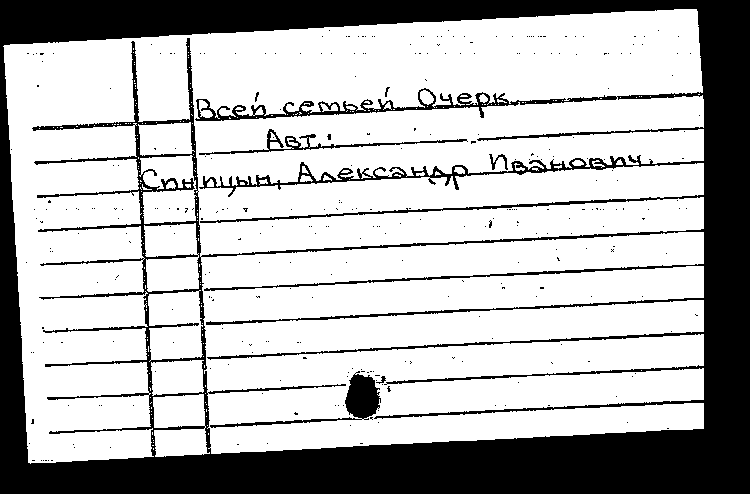 Всей семьей. Очерк.
Авт.:
Спицын, Александр Иванович.